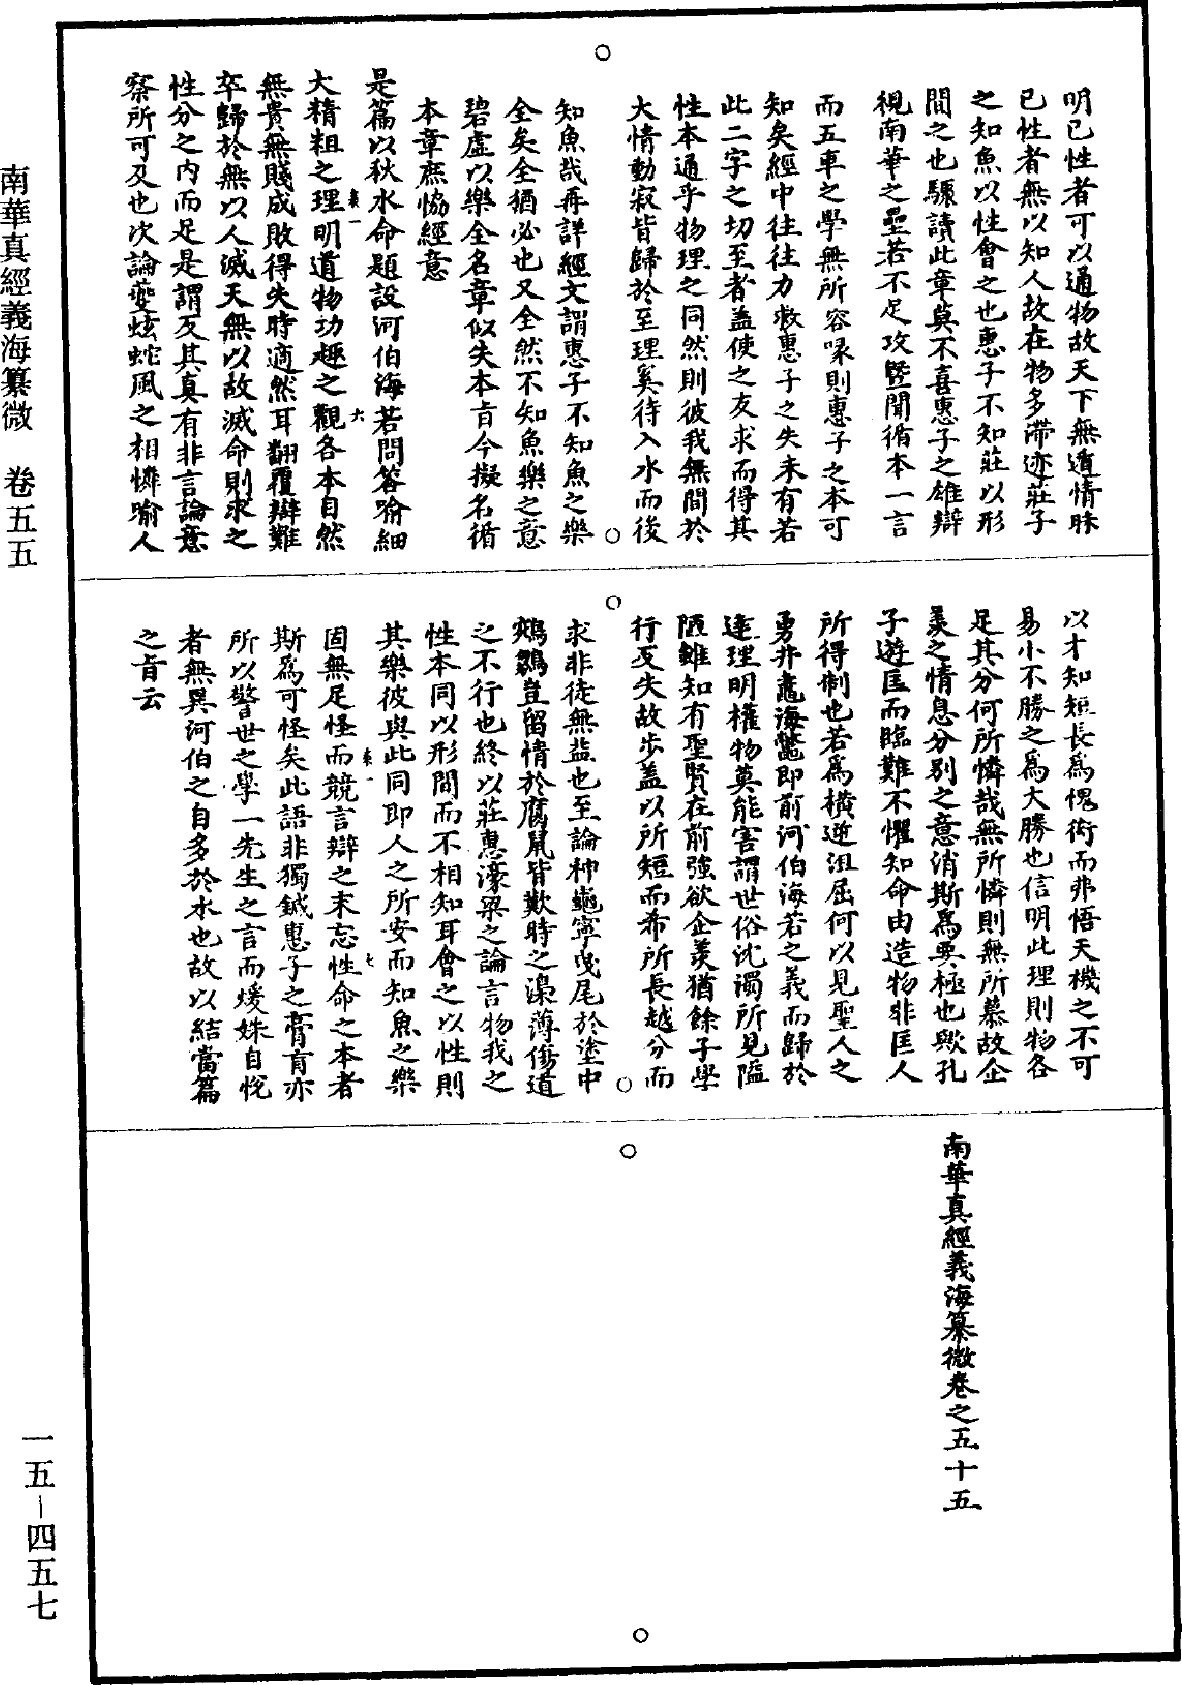 明已性者可以通物故天下無遁情昧
已性者無以知人故在物多滯迹莊子
之知魚以性會之也惠子不知莊以形
間之也驟讀此章莫不喜惠子之雄辯
視南華之壘若不足攻暨聞循本一言
而五車之學無所容喙則惠子之本可
知矣經中往往力救惠子之失未有若
此二字之切至者蓋使之反求而得其
性本通乎物理之同然則彼我無間於
大情動寂皆歸於至理奚待入水而後
知魚哉再詳經文謂惠子不知魚之樂
全矣全猶必也又全然不知魚樂之意
碧虛以樂全名章似失本旨今擬名循
本章庶恊經意
是篇以秋水命題設河伯海若問答喻細
大精粗之理明道物功趣之觀各本自然
無貴無賤成敗得失時適然耳翻覆辯難
卒歸於無以人滅天無以故滅命則求之
性分之內而足是謂反其真有非言論意
察所可及也次論夔蚿蛇風之相憐喻人
以才知短長為愧衒而弗悟天機之不可
易小不勝之為大勝也信明此理則物各
足其分何所憐哉無所憐則無所慕故企
羨之情息分別之意消斯為要極也歟孔
子遊匡而臨難不懼知命由造物非匡人
所得制也若為橫逆沮屈何以見聖人之
勇井鼃海鱉即前河伯海若之義而歸於
達理明權物莫能害謂世俗沈濁所見隘
陋雖知有聖賢在前強欲企羨猶餘子學
行反失故步蓋以所短而希所長越分而
求非徒無益也至論神龜寧曳尾於塗中
鵷鶵豈留情於腐鼠皆歎時之澆薄傷道
之不行也終以莊惠濠梁之論言物我之
性本同以形間而不相知耳會之以性則
其樂彼與此同即人之所安而知魚之樂
固無足怪而競言辯之末忘性命之本者
斯為可怪矣此語非獨鍼惠子之膏肓亦
所以警世之學一先生之言而煖姝自悅
者無異河伯之自多於水也故以結當篇
之旨云
南華真經義海纂微卷之五十五
南華真經義海纂微 卷五五
一五–四五七